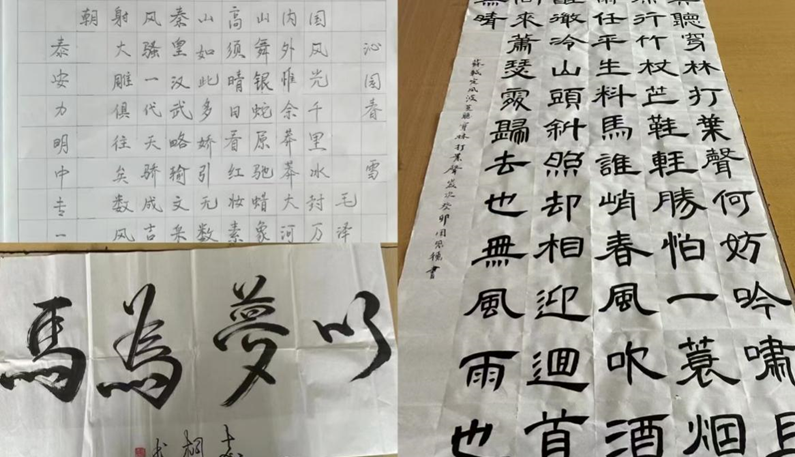 沁园春雪
毛泽
国风光千里冰封万
内外惟余莽莽大河
山舞银蛇原驰蜡象
高须晴日看红妆素
山如此多娇引无数
秦皇汉武略输文采
风骚一代天骄成吉
射大雕俱往矣数风
朝
泰安力明中专一
以夢為馬
聽穿林打葉聲何妨吟嘯且
行竹杖芒鞋輕勝怕一蓑烟
雨任平生料馬誰峭春風吹酒
醒微冷山頭斜照却相迎迴首
向來蕭瑟處歸去也無風雨也
無晴
蘇軾定風波莫聽穿林打葉聲歲次癸卯周書